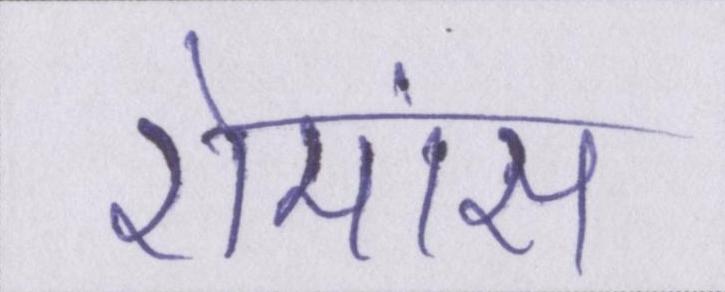 रोमांस